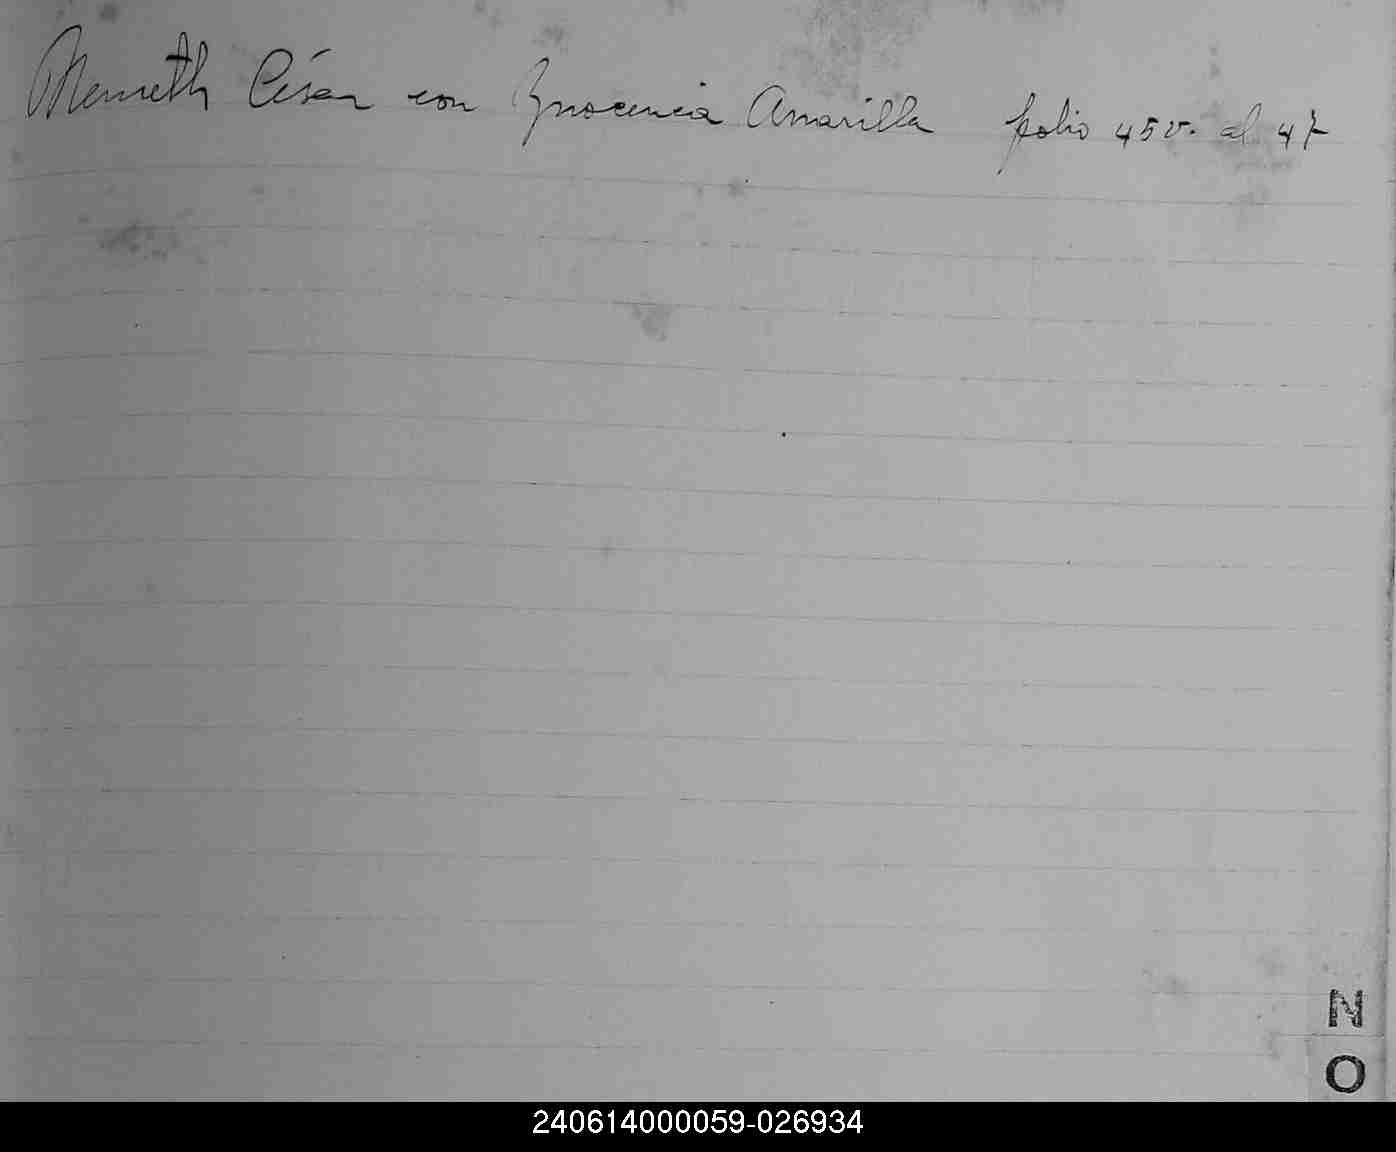 Nemeth César con Ynocencia Amarilla folio 45v. al 47
N
O
240614000059-026934